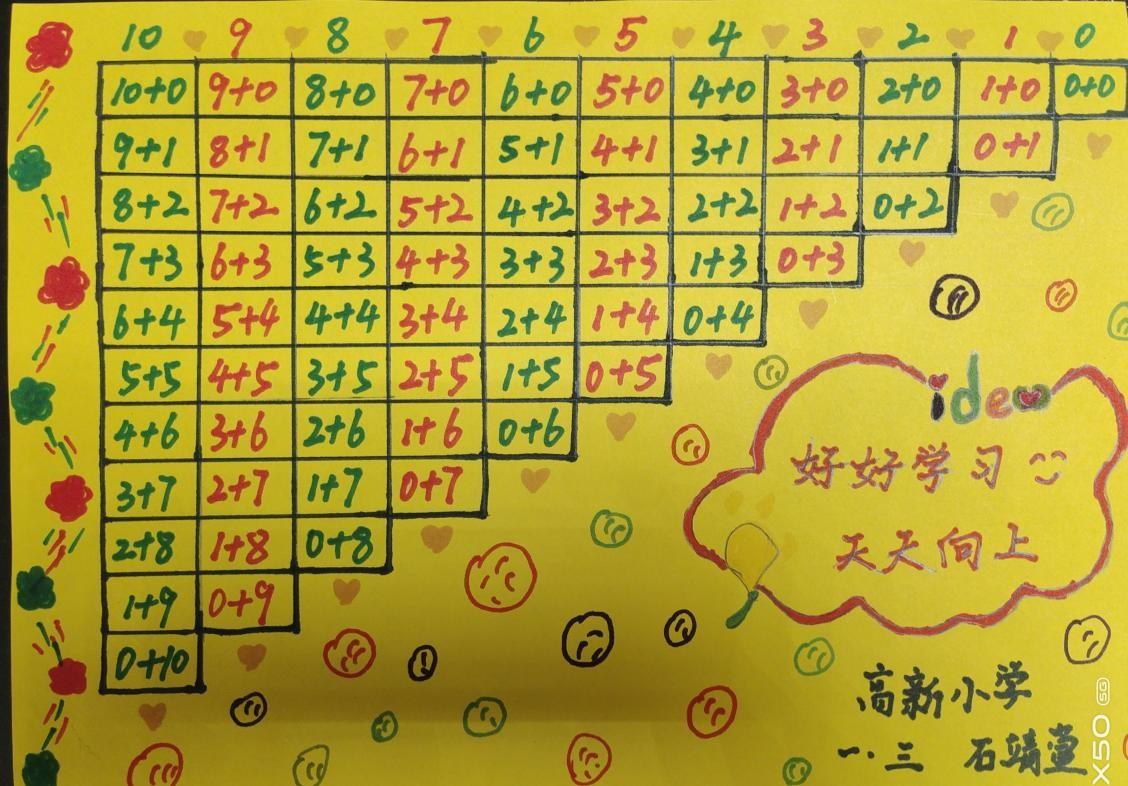 10 9 8 7 6 5 4 3 2 1 0
10+0 9+0 8+0 7+0 6+0 5+0 4+0 3+0 2+0 1+0 0+0
9+1 8+1 7+1 6+1 5+1 4+1 3+1 2+1 1+1 0+1
8+2 7+2 6+2 5+2 4+2 3+2 2+2 1+2 0+2
7+3 6+3 5+3 4+3 3+3 2+3 1+3 0+3
6+4 5+4 4+4 3+4 2+4 1+4 0+4
5+5 4+5 3+5 2+5 1+5 0+5
4+6 3+6 2+6 1+6 0+6
3+7 2+7 1+7 0+7
2+8 1+8 0+8
1+9 0+9
0+10
idea
好好学习
天天向上
高新小学
一.三 石靖萱
X50 5G